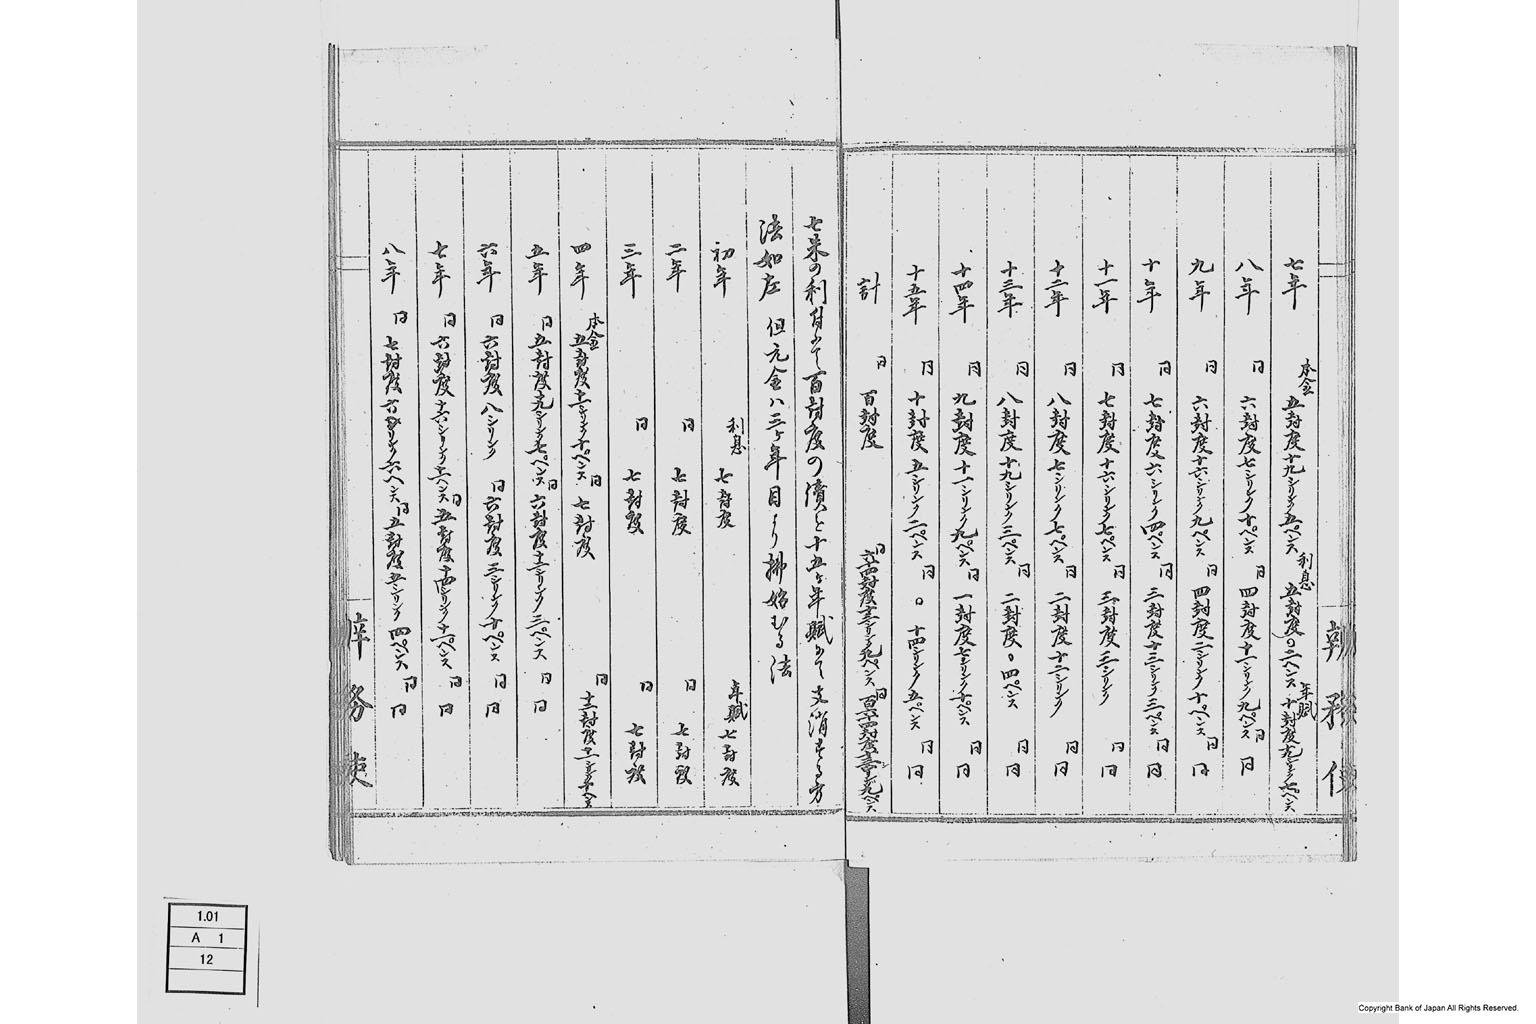 七年 本金 五封度十九シリンク五ペンス 利息 五封度〇二ペンス 年賦 十封度十九シリンク七ペンス
八年 同 六封度七シリンク十ペンス 同 四封度十一シリンク九ペンス 同 同
九年 同 六封度十六シリンク九ペンス 同 四封度二シリンク十ペンス 同 同
十年 同 七封度六シリンク四ペンス 同 三封度十三シリンク三ペンス 同 同
十一年 同 七封度十六シリンク七ペンス 同 三封度三シリンク 同 同
十二年 同 八封度七シリンク七ペンス 同 二封度十二シリンク 同 同
十三年 同 八封度十九シリンク三ペンス 同 二封度〇四ペンス 同 同
十四年 同 九封度十一シリンク九ペンス 同 一封度七シリンク十ペンス 同 同
十五年 同 十封度五シリンク二ペンス 同 〇十四シリンク五ペンス 同 同
計 同 百封度 同 六十四封度十三シリンク九ペンス 同 百六十四封度十三シリンク九ペンス
七朱の利付にて百封度の債を十五ケ年賦にて支消する方
法如左 但元金ハ三ケ年目より拂始むる法
初年 利息 七封度 年賦 七封度
二年 同 七封度 同 七封度
三年 同 七封度 同 七封度
四年 本金 五封度十一シリンク十ペンス 同 七封度 同 十二封度十一シリンク十ペンス
五年 同 五封度十九シリンク七ペンス 同 六封度十二シリンク三ペンス 同 同
六年 同 六封度八シリンク 同 六封度三シリンク十ペンス 同 同
七年 同 六封度十六シリンク十一ペンス 同 五封度十四シリンク十一ペンス 同 同
八年 同 七封度六シリンク六ペンス 同 五封度五シリンク四ペンス 同 同
辨務使
1.01
A 1
12
Copyright Bank of Japan All Rights Reserved.